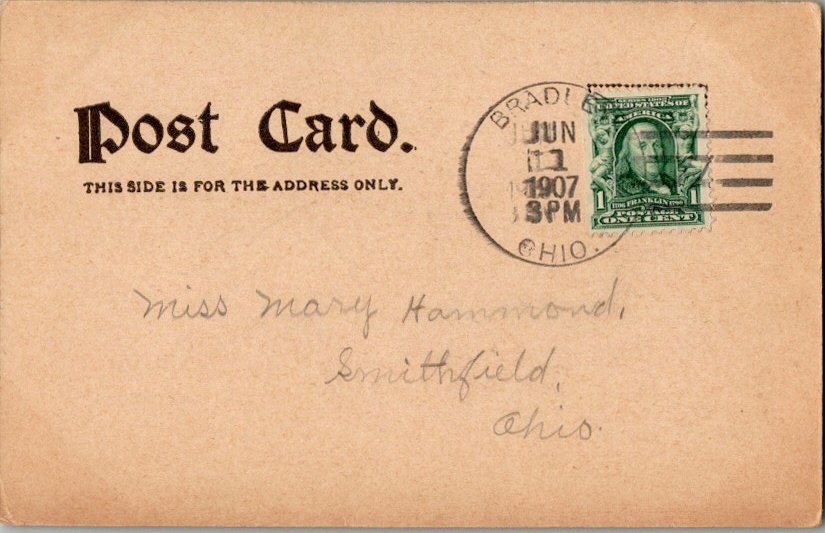 Post Card.
THIS SIDE IS FOR THE ADDRESS ONLY.
BRADLE
JUN
11
1907
3 PM
OHIO.
SERIES 1902
UNITED STATES OF
AMERICA
1 1706 FRANKLIN 1790 1
POSTAGE
ONE CENT
Miss Mary Hammond,
Smithfield,
Ohio.